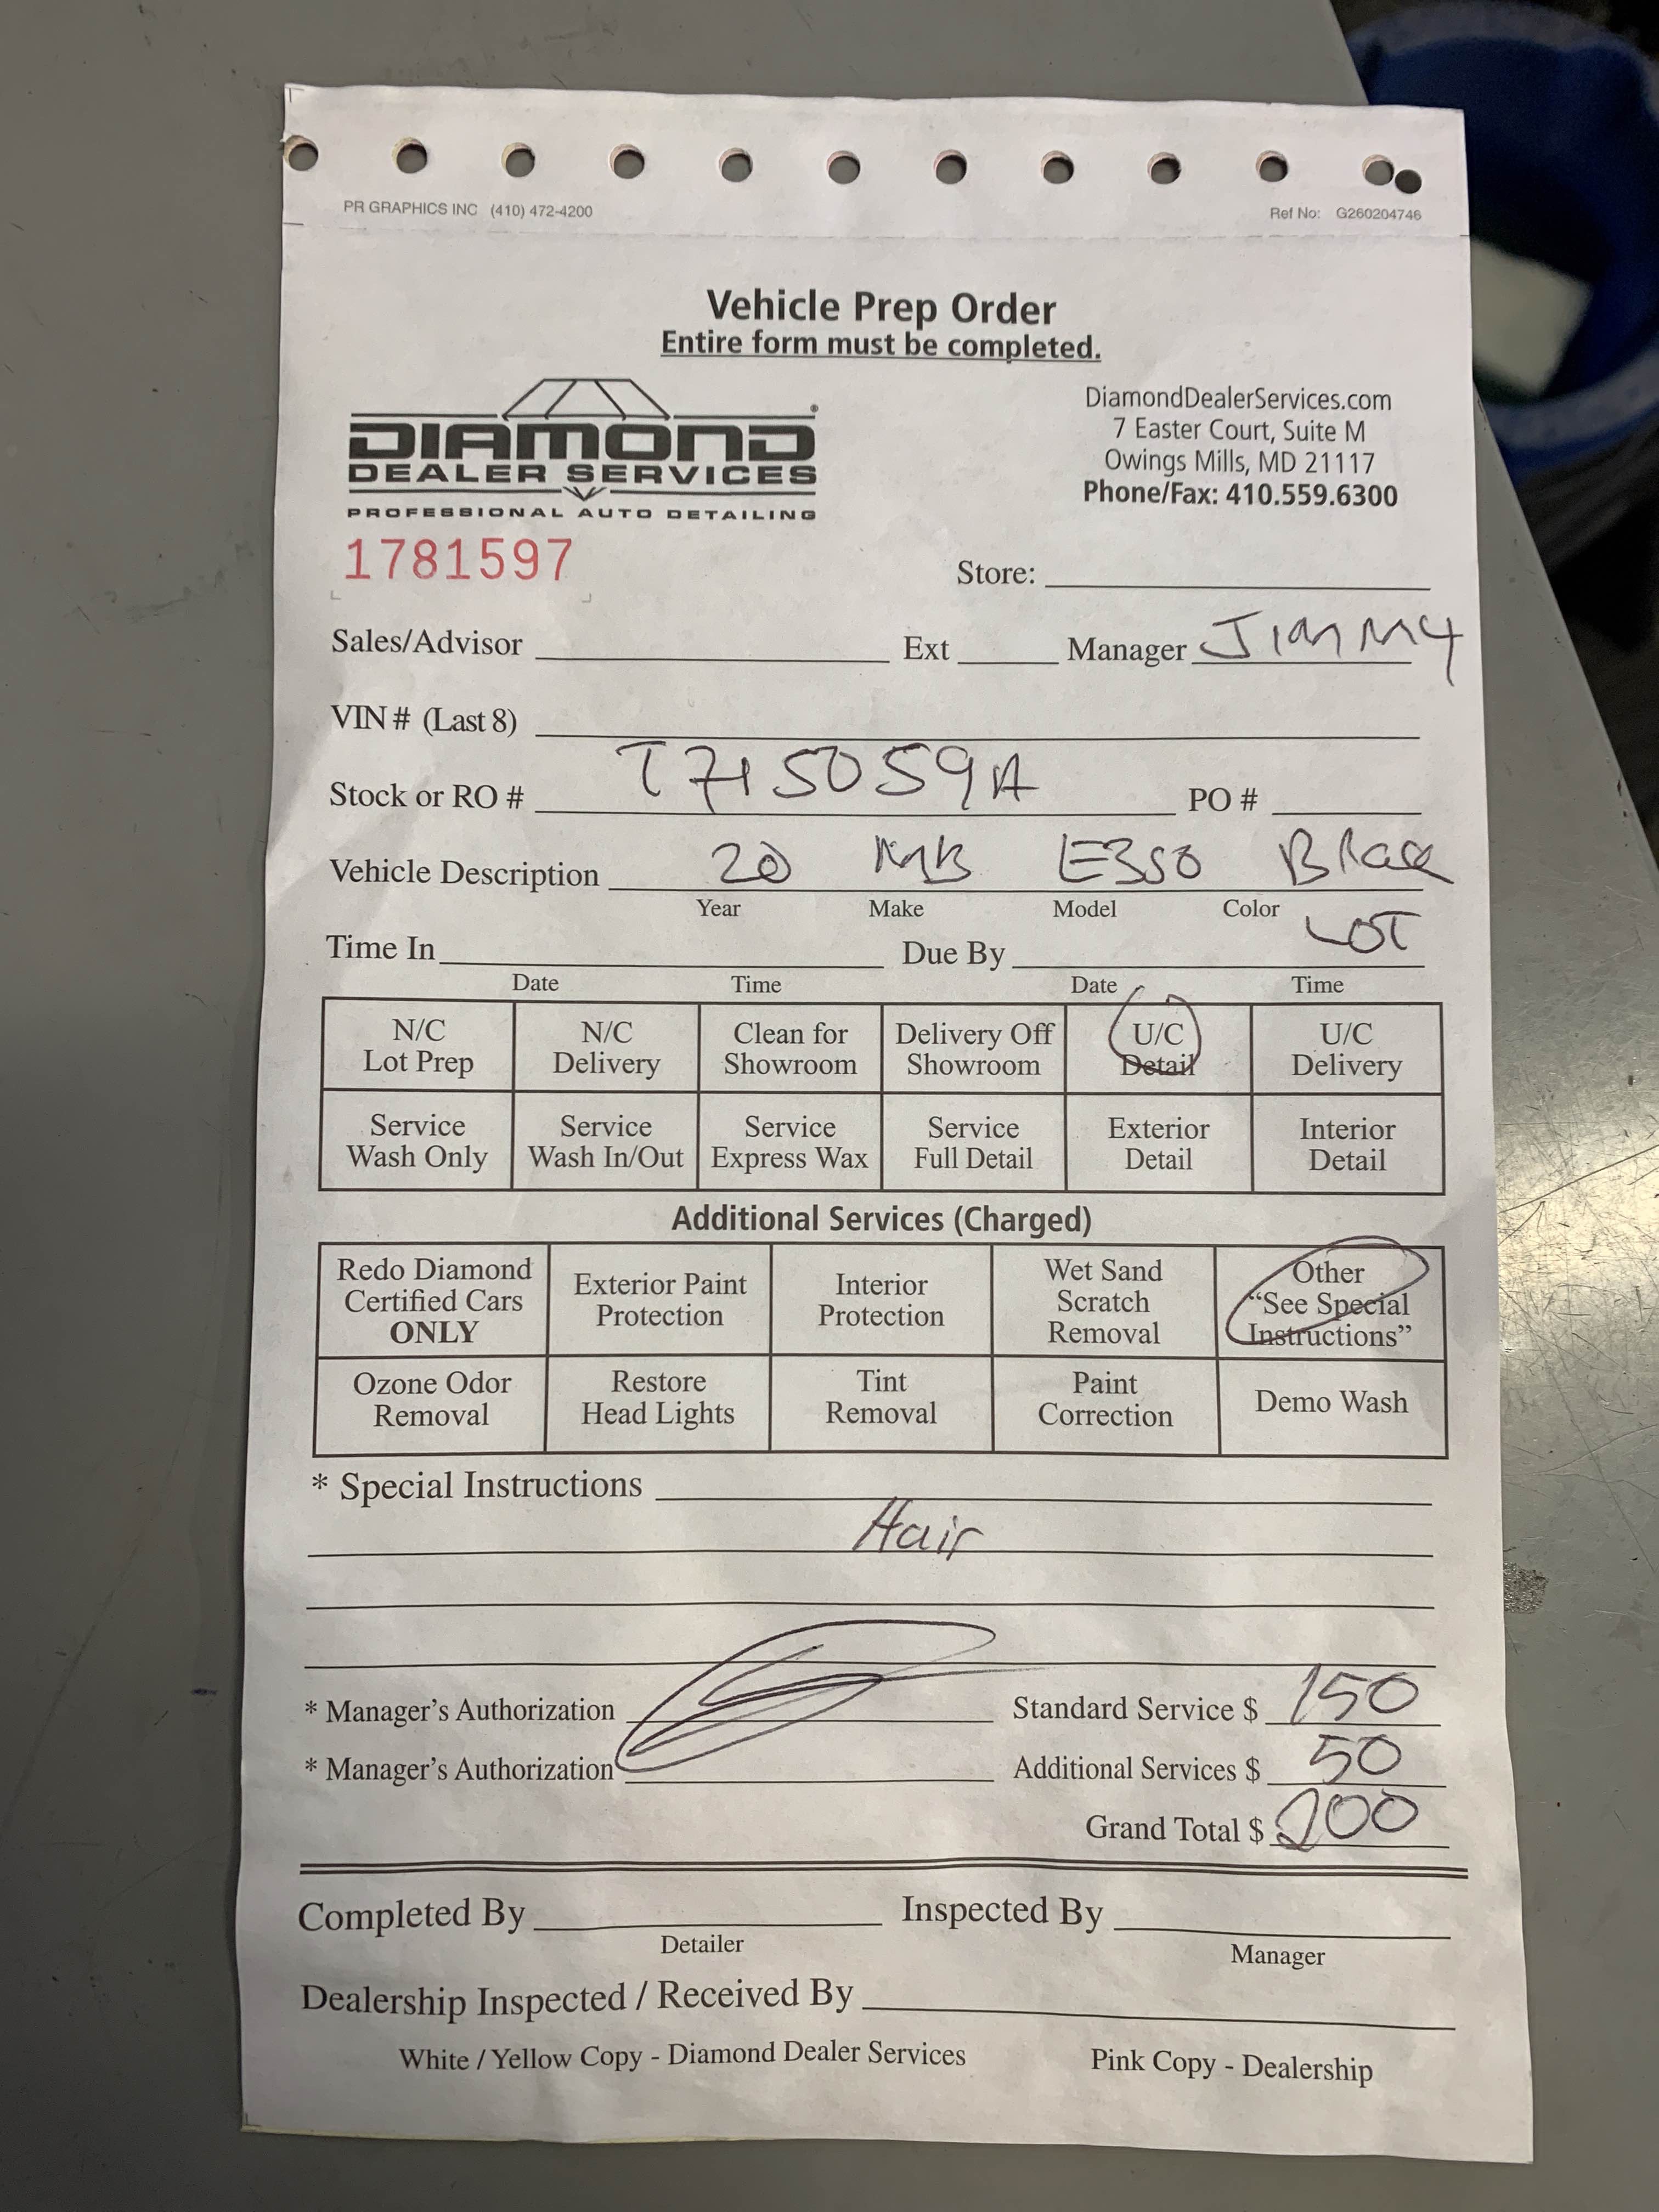 PR GRAPHICS INC (410) 472-4200 Ref No: G260204746
Vehicle Prep Order
Entire form must be completed.
DIAMOND
DEALER SERVICES
PROFESSIONAL AUTO DETAILING
DiamondDealerServices.com
7 Easter Court, Suite M
Owings Mills, MD 21117
Phone/Fax: 410.559.6300
1781597
Store:
Sales/Advisor Ext Manager Jimmy
VIN # (Last 8)
Stock or RO # T715059A PO #
Vehicle Description 20 MB E350 Black
Year Make Model Color
Time In Due By LOT
Date Time Date Time
N/C Lot Prep
N/C Delivery
Clean for Showroom
Delivery Off Showroom
U/C Detail
U/C Delivery
Service Wash Only
Service Wash In/Out
Service Express Wax
Service Full Detail
Exterior Detail
Interior Detail
Additional Services (Charged)
Redo Diamond Certified Cars ONLY
Exterior Paint Protection
Interior Protection
Wet Sand Scratch Removal
Other "See Special Instructions"
Ozone Odor Removal
Restore Head Lights
Tint Removal
Paint Correction
Demo Wash
* Special Instructions
Hair
* Manager's Authorization Standard Service $ 150
* Manager's Authorization Additional Services $ 50
Grand Total $ 200
Completed By Inspected By
Detailer Manager
Dealership Inspected / Received By
White / Yellow Copy - Diamond Dealer Services Pink Copy - Dealership